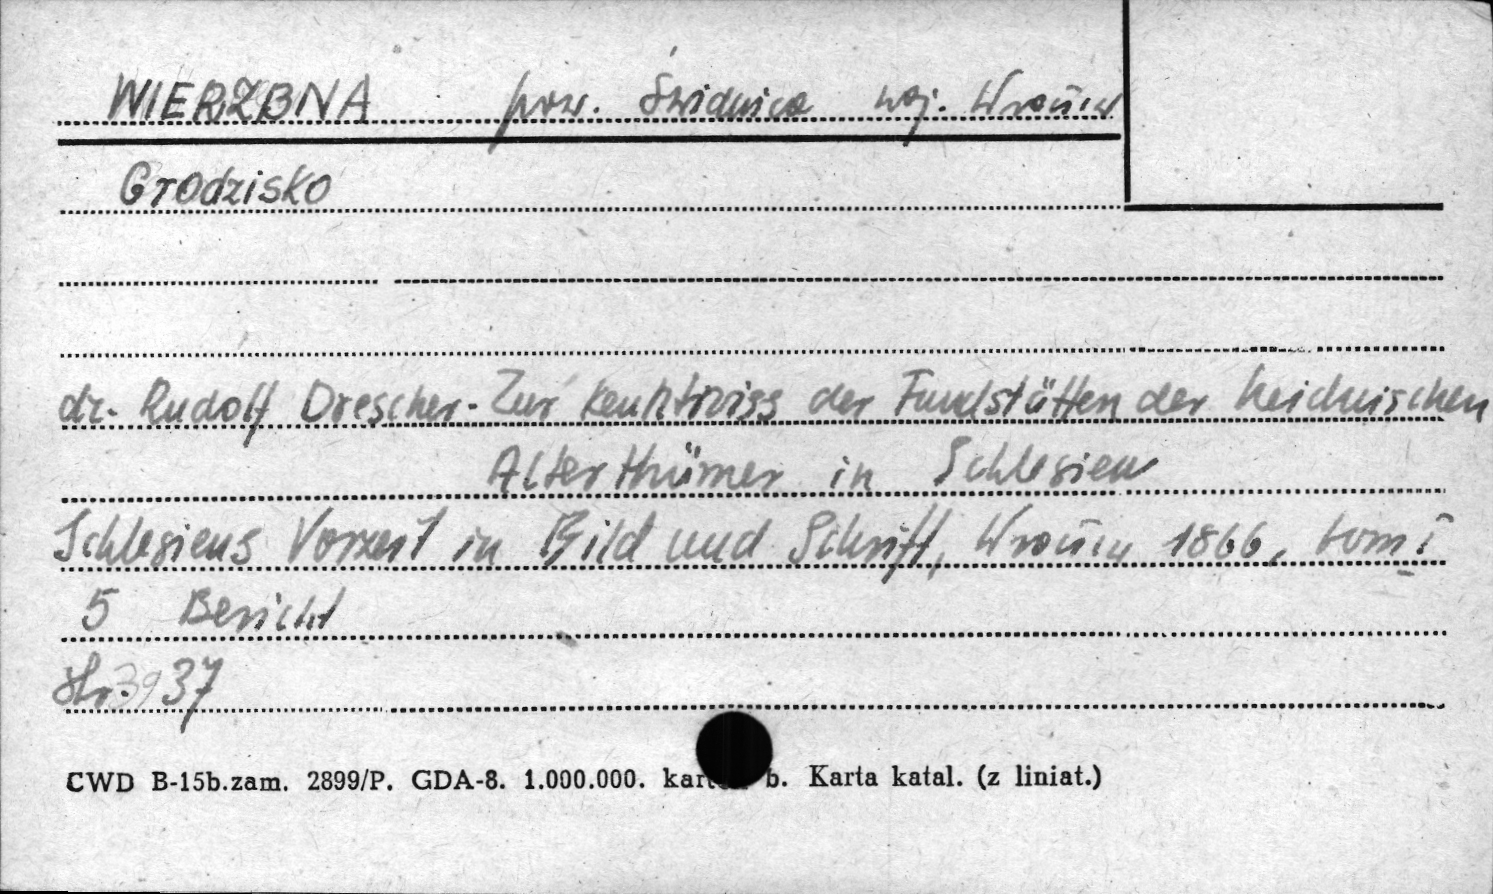 WIERZBNA pow. Świdnica woj. Wrocław
Grodzisko
dr. Rudolf Drescher - Zur Kenntniss der Fundstätten der heidnischen
Alterthümer in Schlesien
Schlesiens Vorzeit in Bild und Schrift, Wrocław 1866, tom I
5 Bericht
Str. 37
CWD B-15b.zam. 2899/P. GDA-8. 1.000.000. b. Karta katal. (z liniat.)